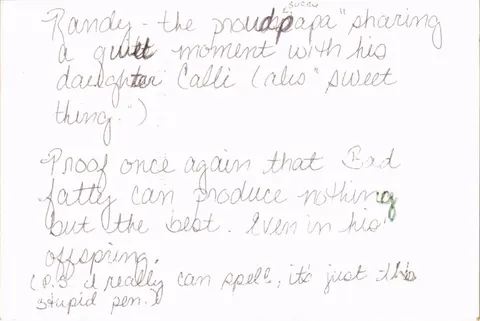 Randy - the proud papa" sharing
a quiet moment with his
daughter Calli (aka "sweet
thing.")
Proof once again that Bad
fatty can produce nothing
but the best. Even in his
offspring.
(P.S. I really can spell, it's just this
stupid pen.)